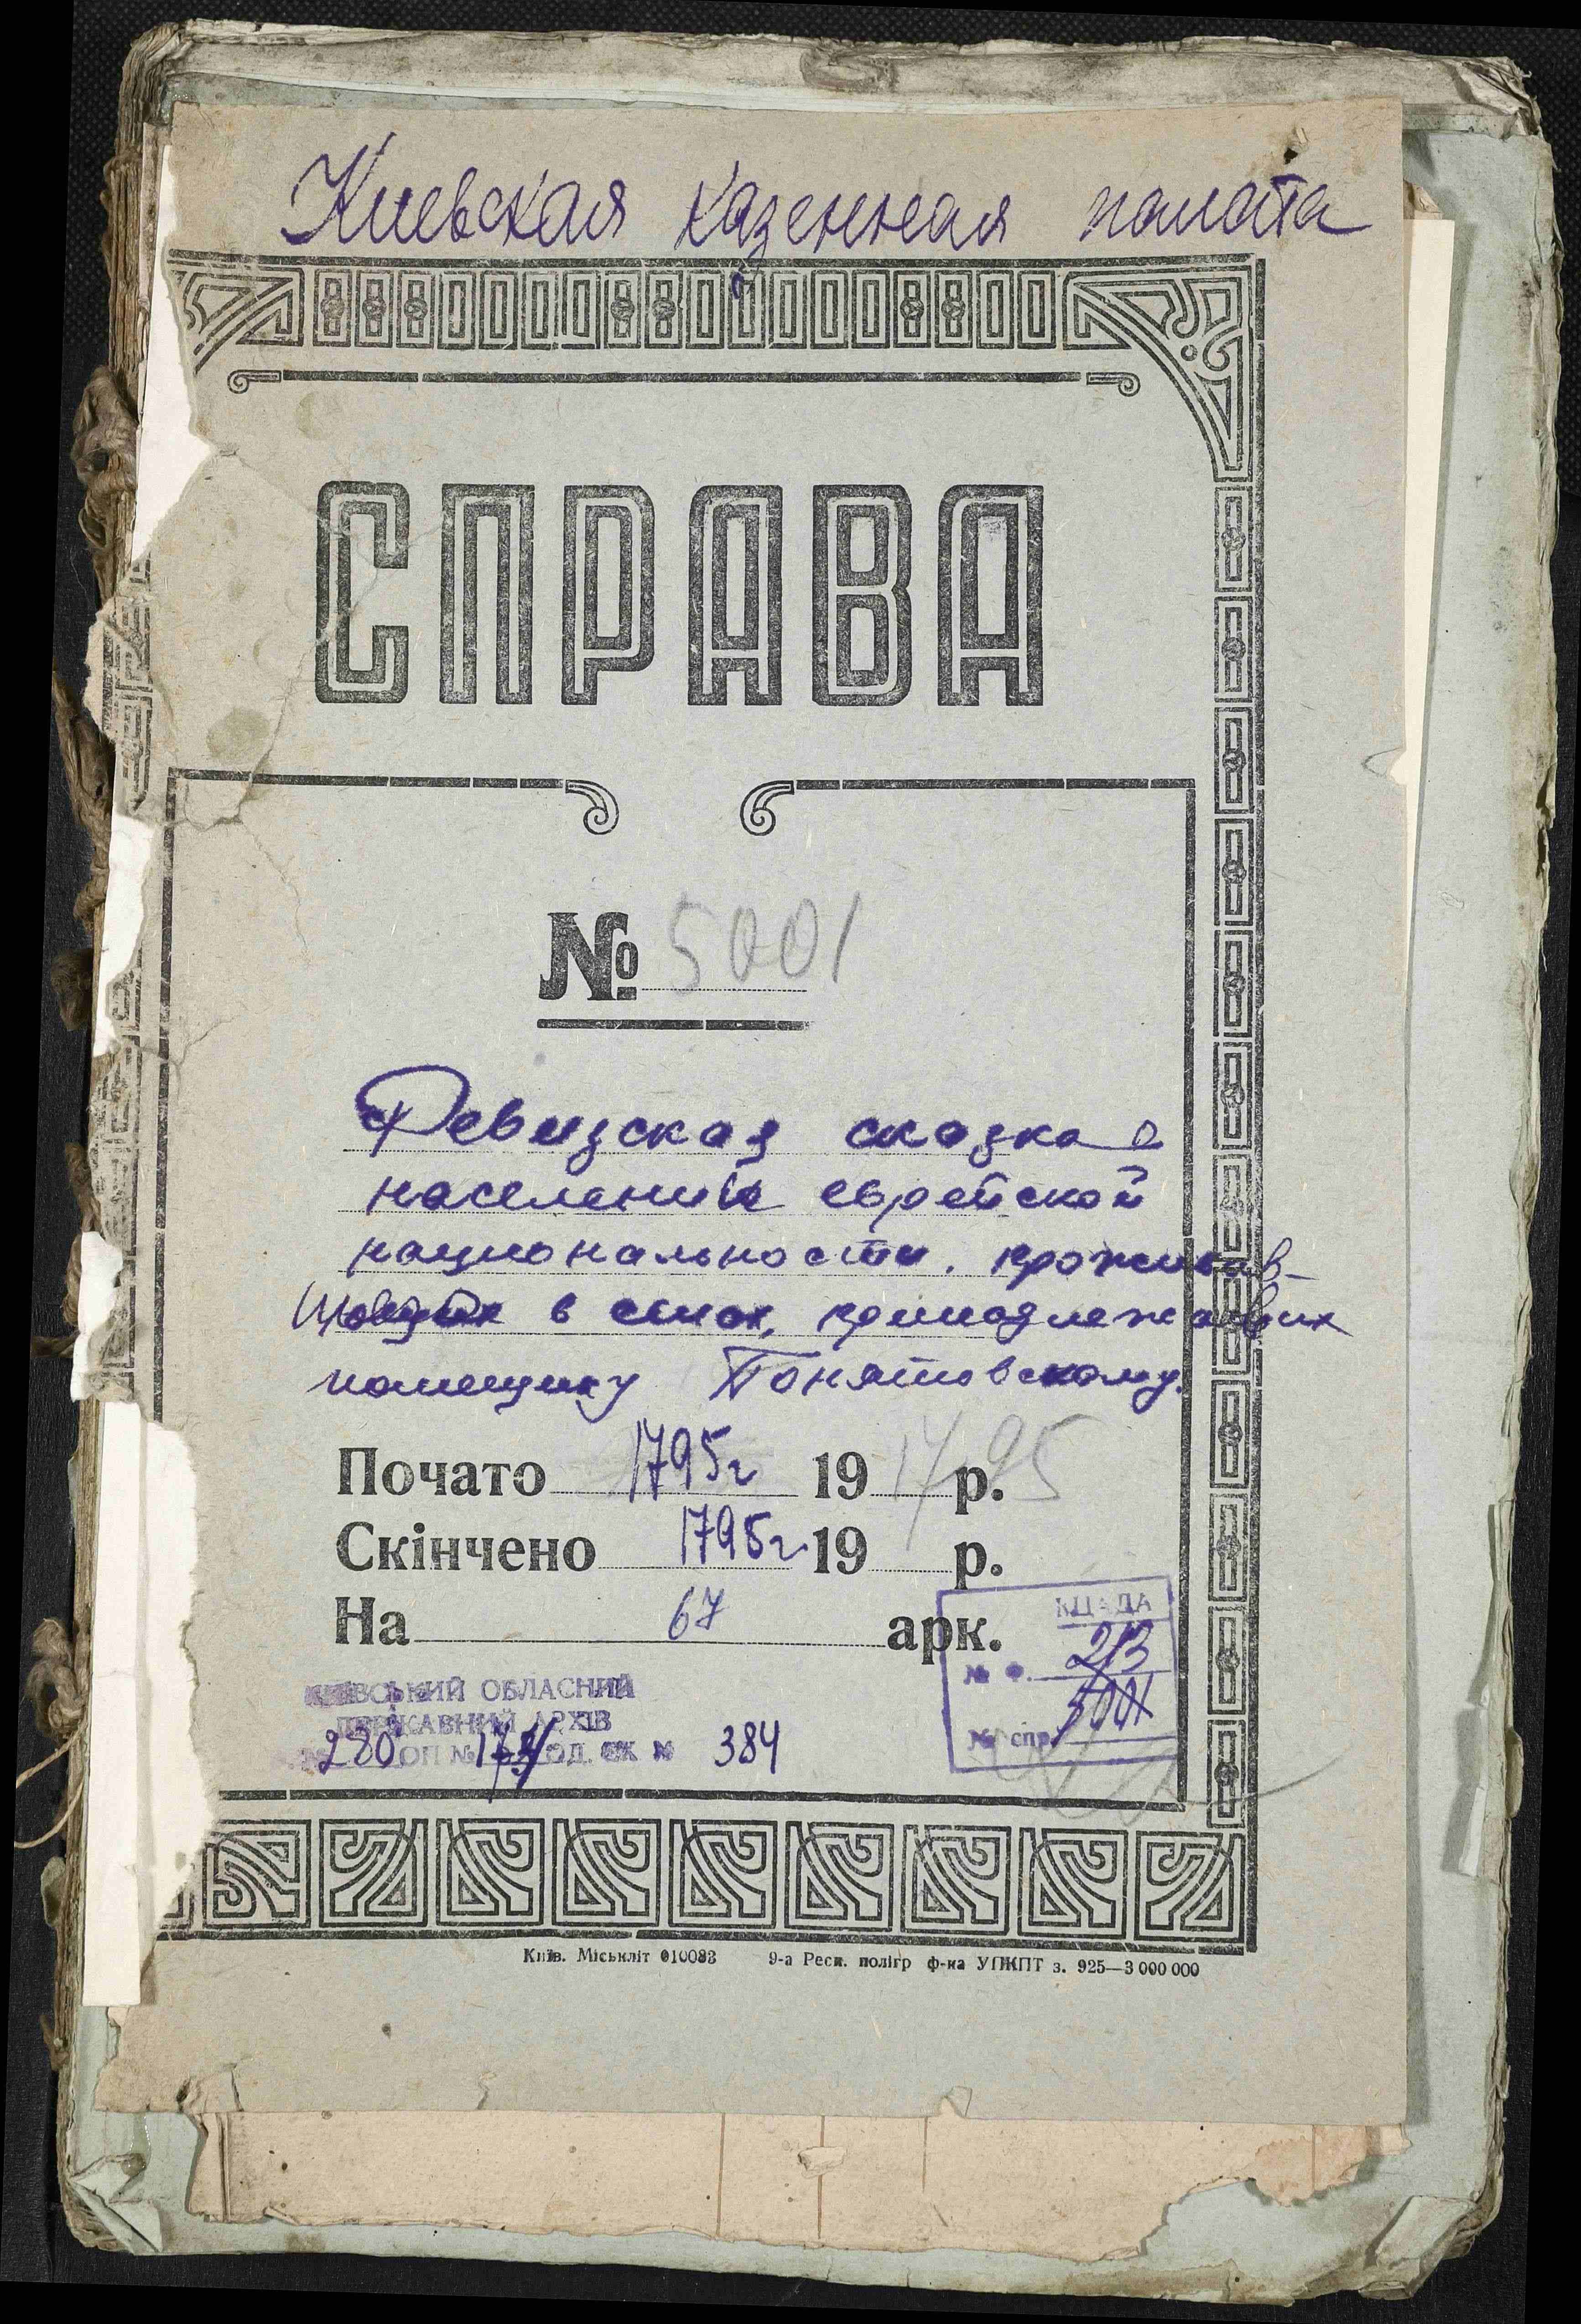 Киевская казенная палата
СПРАВА
№ 5001
Ревизская сказка о
населении еврейской
национальности, проживав-
в селах, принадлежавших
помещику Понятовскому.
Почато 1795г 19 р. 1795
Скінчено 1795г 19 р.
На 67 арк.
КЦАДА
№ Ф. 213
№ спр. 5001
КИЇВСЬКИЙ ОБЛАСНИЙ
ДЕРЖАВНИЙ АРХІВ
280 ОП № ОД. ЗБ. № 384
Київ. Міськліт 010083 9-а Респ. полігр ф-ка УПЖПТ з. 925—3 000 000